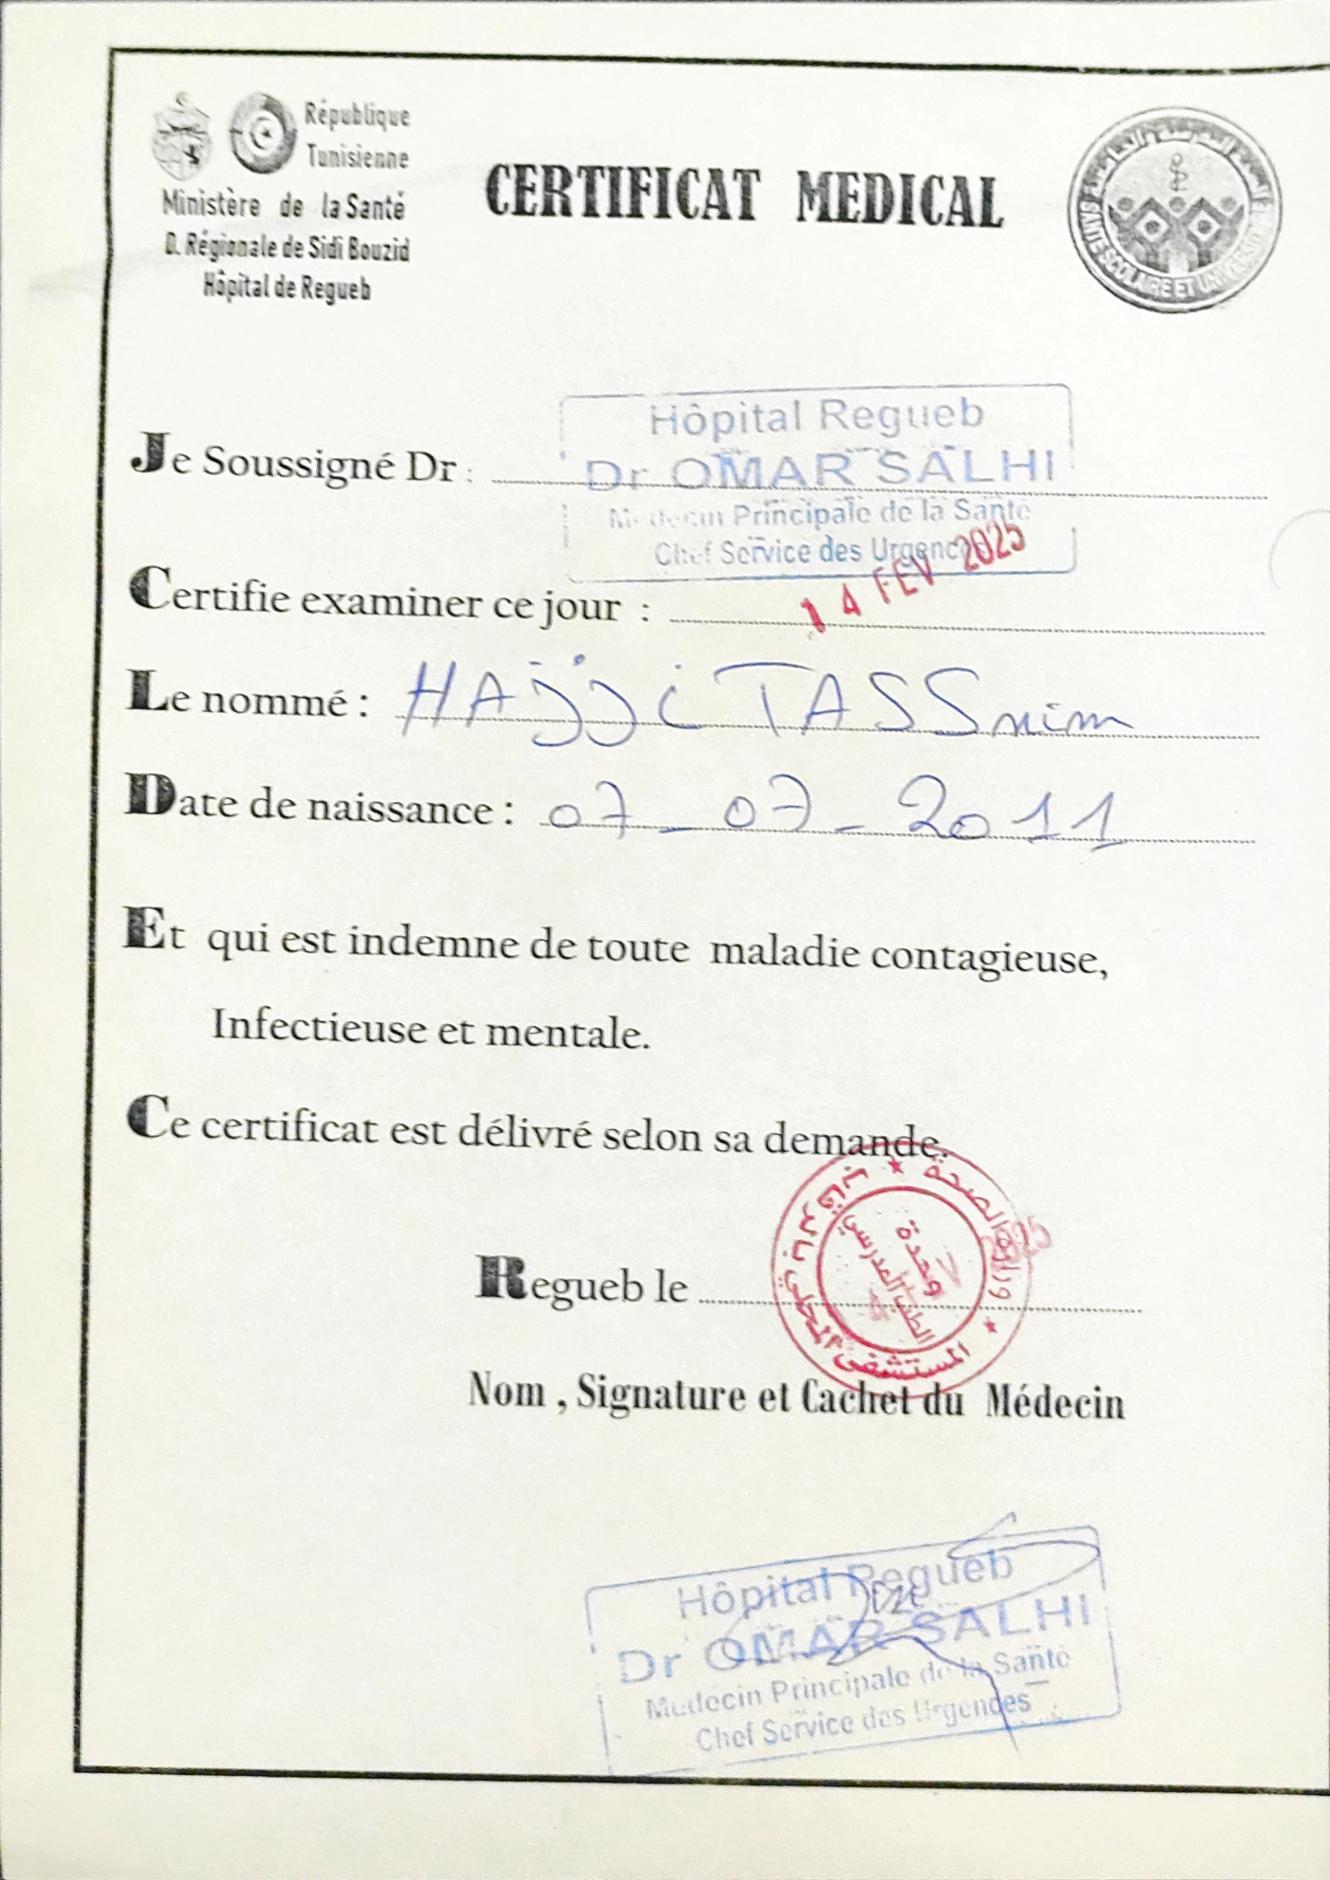 République
Tunisienne
Ministère de la Santé
D. Régionale de Sidi Bouzid
Hôpital de Regueb
CERTIFICAT MEDICAL
SANTE SCOLAIRE ET UNIVERSITAIRE
Hôpital Regueb
Je Soussigné Dr : Dr OMAR SALHI
Medecin Principale de la Santé
Chef Service des Urgences
Certifie examiner ce jour : 14 FEV 2025
Le nommé : HAjji TASSnim
Date de naissance : 07_07_2011
Et qui est indemne de toute maladie contagieuse,
Infectieuse et mentale.
Ce certificat est délivré selon sa demande.
وزارة الصحة
المستشفى المحلي بالرقاب
وحدة
الطب المدرسي
Regueb le 2025
Nom , Signature et Cachet du Médecin
Hôpital Regueb
Dr OMAR SALHI
Medecin Principale de la Santé
Chef Service des Urgences